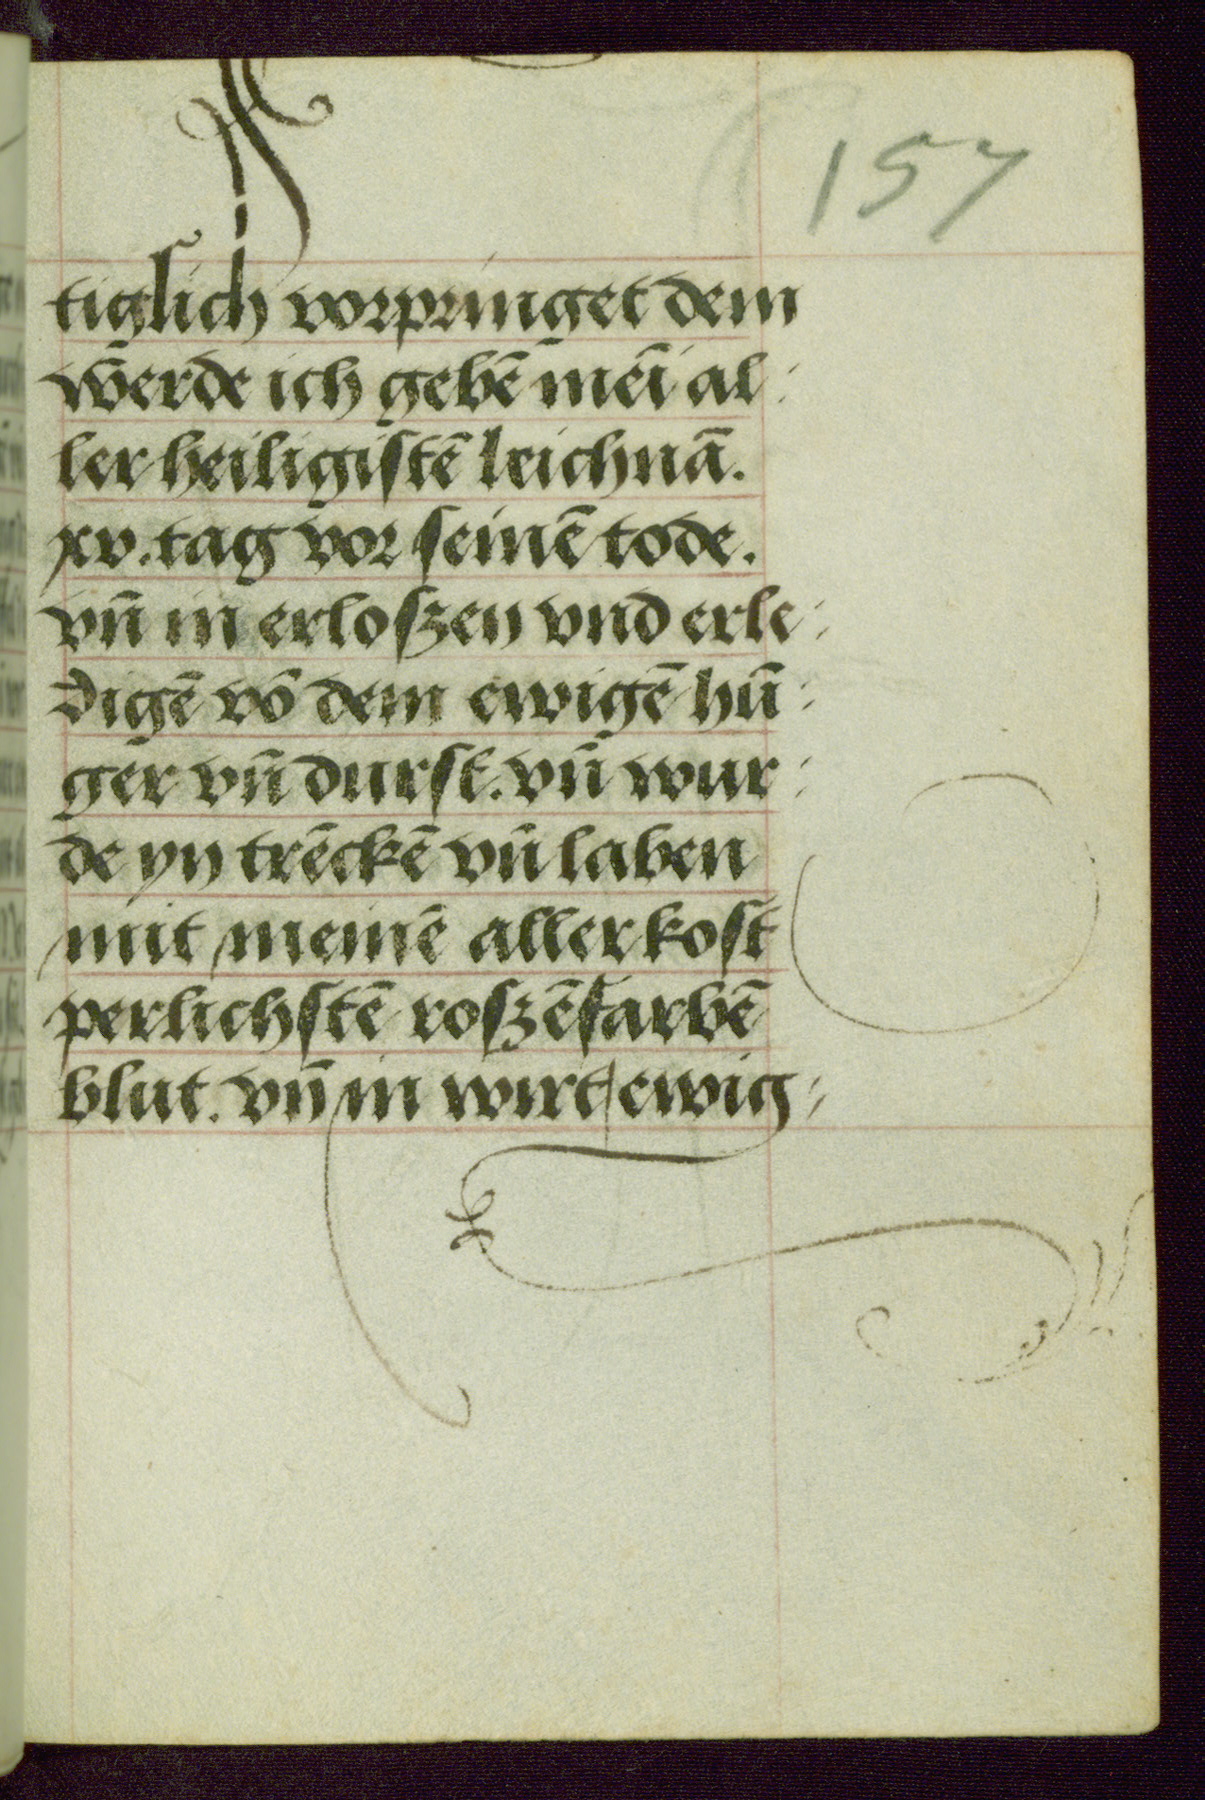 157
tiglich vorpringet dem
werde ich gebē mēi al:
ler heiligistē leichnā.
xv. tag vor seinē tode.
vn̄ in erloszen vnd erle:
digē vō dem ewigē hū:
ger vn̄ durst. vn̄ wur:
de yn trēckē vn̄ laben
mit meinē aller kost
perlichstē roszēfarbē
blut. vn̄ in wirt ewig: